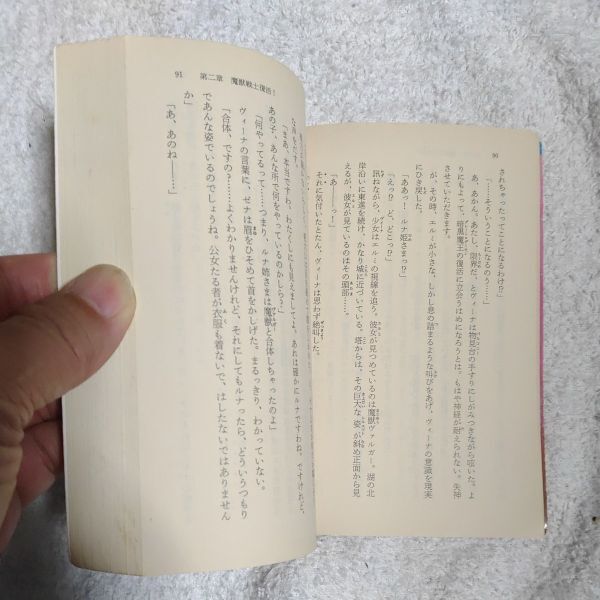 90
されちゃったってことになるわけ!?
「……そういうことになるのう……」
あ、あかん。あたし、限界だ、とヴィーナは物見台の手すりにしがみつきながら呟いた。よ
りにもよって、暗黒魔王の復活に立会うはめになろうとは。もはや神経が耐えられない。失神
させていただきます。
が、その時、エルミが小さな、しかし息の詰まるような叫びをあげ、ヴィーナの意識を現実
にひき戻した。
「ああっー！　ルナ姫さまっ!?」
「えっ!?　ど、どこっ!?」
訊ねながら、少女はエルミの視線を追う。彼女が見つめているのは魔獣ヴァルガー。湖の北
岸沿いに東進を続け、かなり城に近づいている。塔からは、その巨大な姿が斜め正面から見
えるが、彼女が見ているのはその頭部……。
「あーっー！」
それに気付いたとたん、ヴィーナは思わず絶叫した。
91　第二章　魔獣戦士復活！
な
「まあ、本当ですわ。わたくしにも見えましてよ。あれは確かにルナですわね。ですけれど、
あの子、あんな所で何をやっているのかしら？」
「何やってるって……つまり、ルナ姉さまは魔獣と合体しちゃったのよ」
ヴィーナの言葉に、ゼナは眉をひそめて首をかしげた。まるっきり、わかっていない。
「合体、ですの？……よくわかりませんけれど、それにしてもルナったら、どういうつもり
であんな姿でいるのでしょうね。公女たる者が衣服も着ないで、はしたないではありません
か」
「あ、あのね――……」